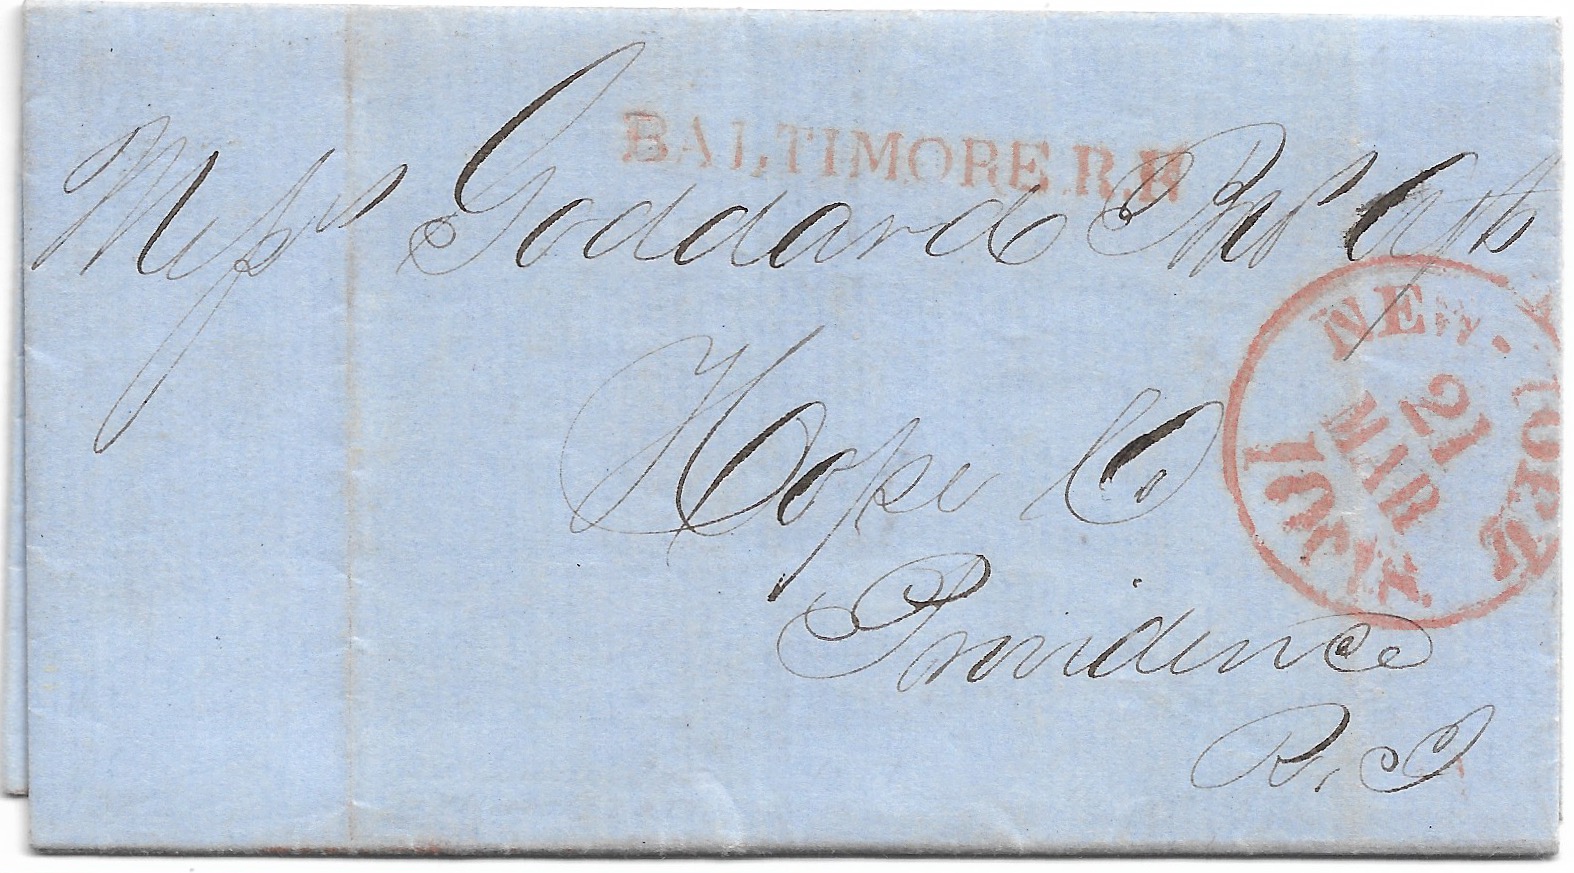 BALTIMORE R.R
Messrs Goddard Bros Agts
Hope Co
Providence
R.I
NEW-YORK
21
MAR
10 cts